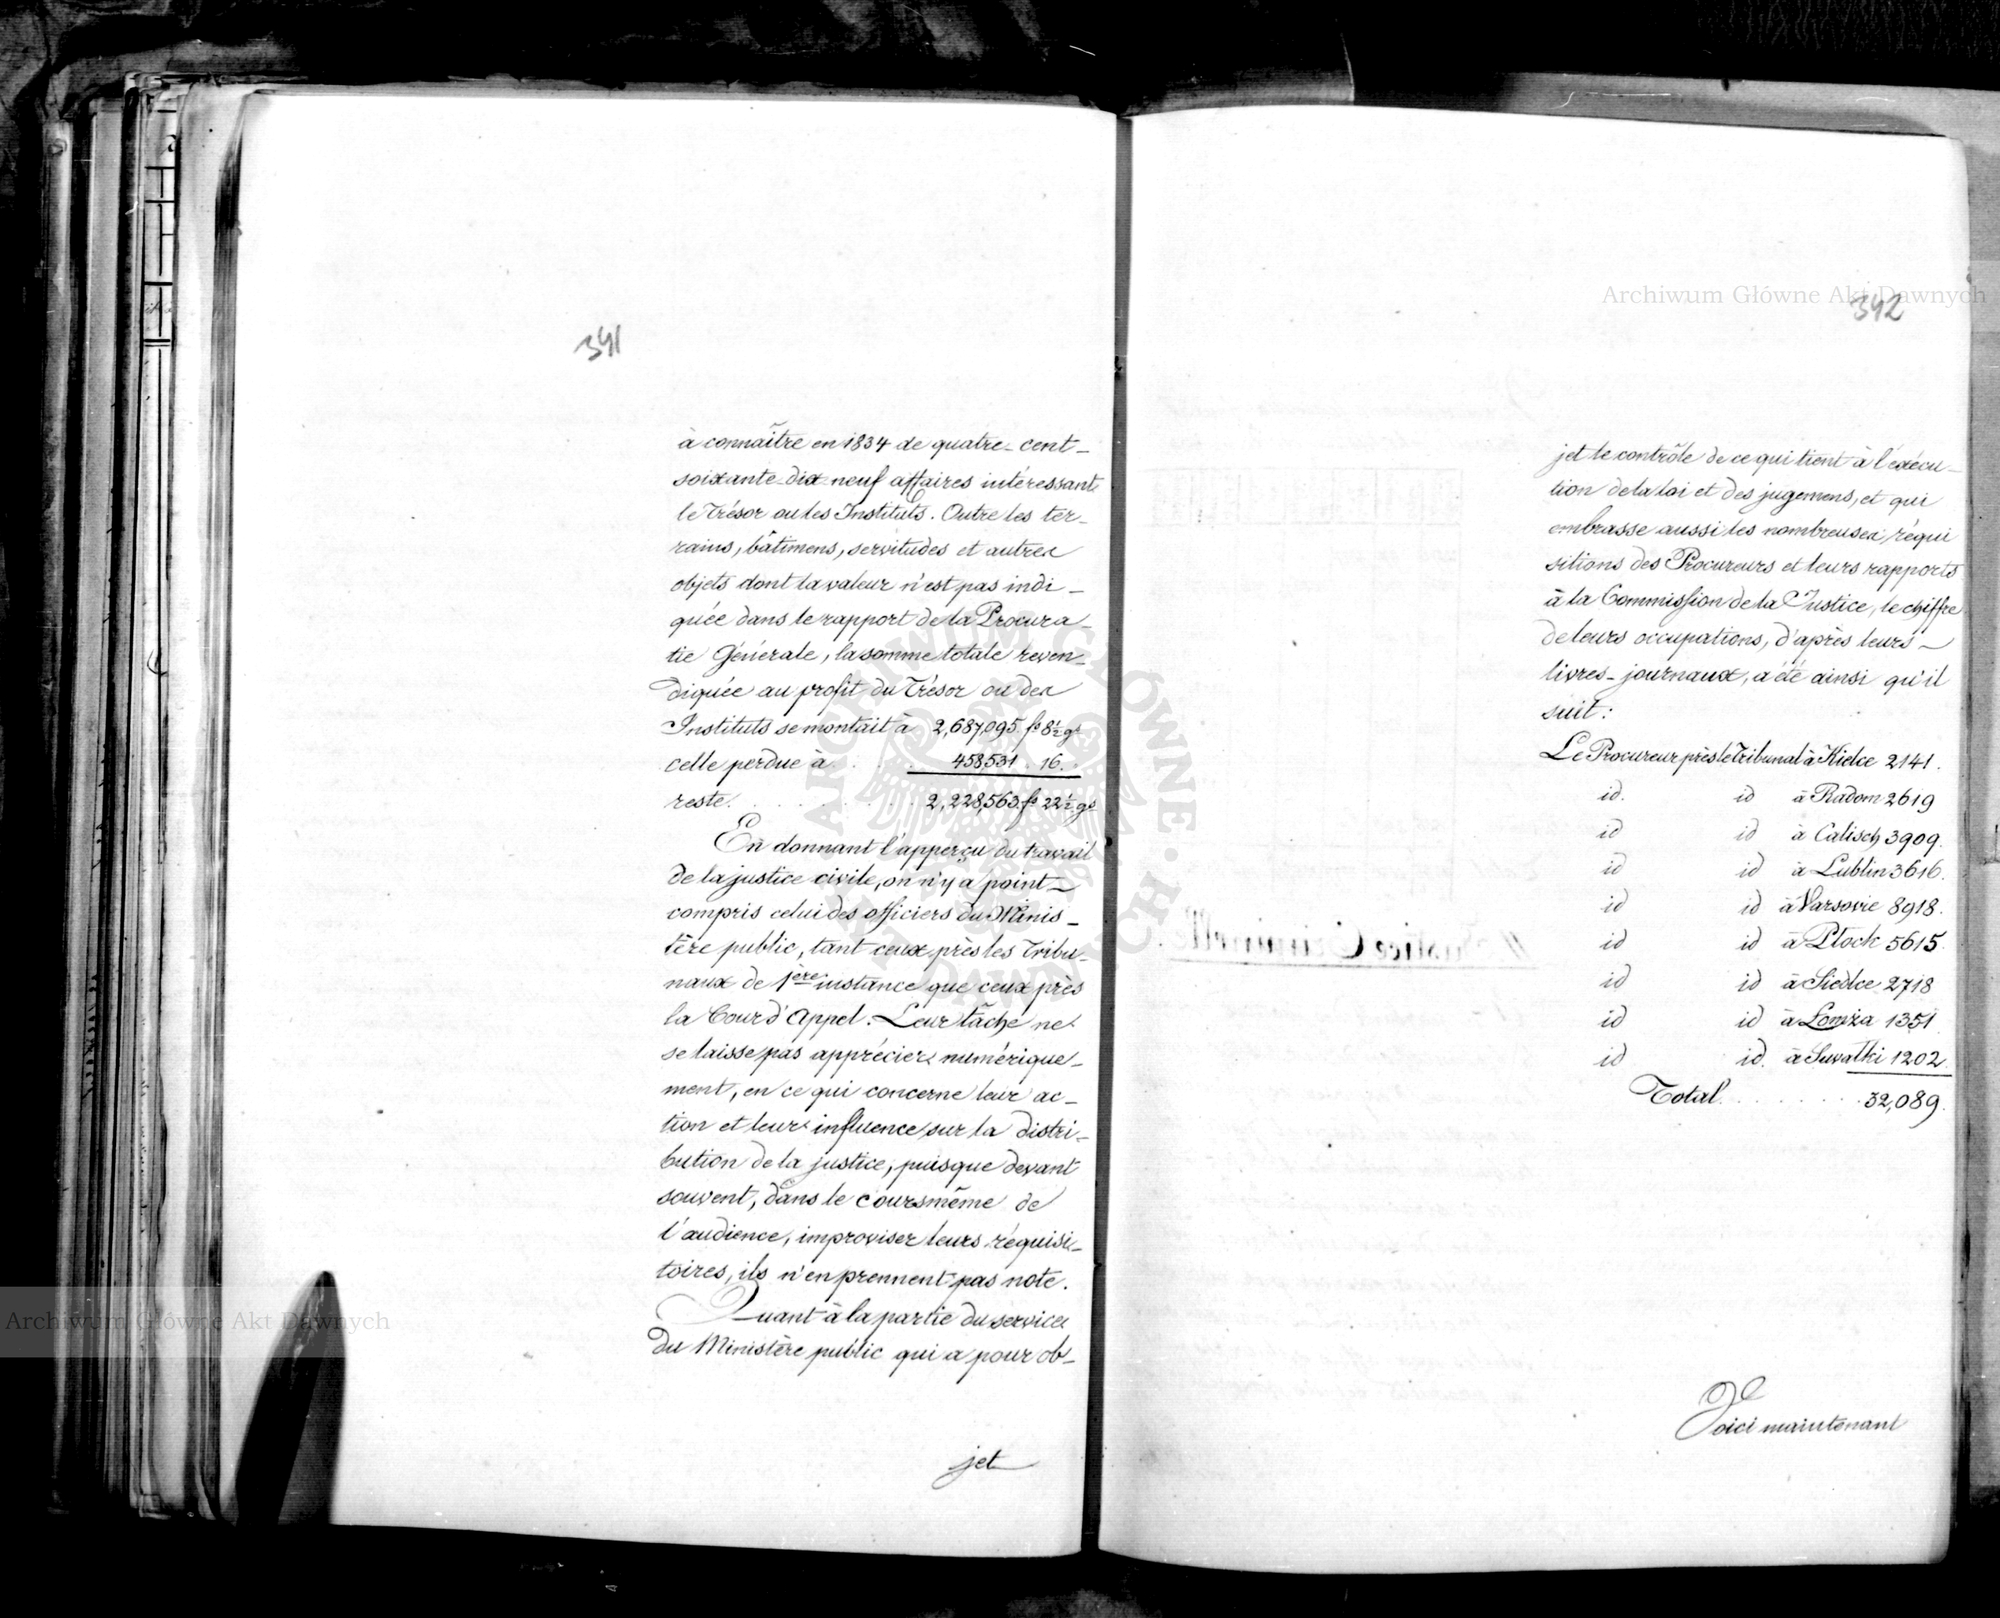 341
à connaître en 1834 de quatre-cent-
soixante-dix-neuf affaires intéressant
le Trésor ou les Instituts. Outre les ter-
rains, bâtimens, servitudes et autres
objets dont la valeur n'est pas indi-
quée dans le rapport de la Procura-
tie Générale, la somme totale reven-
diquée au profit du Trésor ou des
Instituts se montait à 2,687,095 fs 8½ gs
celle perdue à . . . 458,531 . 16.
reste. . . . . . . . 2,228,563. fs 22½ gs
En donnant l'apperçu du travail
de la justice civile, on n'y a point
compris celui des officiers du Minis-
tère public, tant ceux près les Tribu-
naux de 1ère instance que ceux près
la Cour d'Appel. Leur tâche ne
se laisse pas apprécier numérique-
ment, en ce qui concerne leur ac-
tion et leur influence sur la distri-
bution de la justice, puisque devant
souvent, dans le cours même de
l'audience, improviser leurs réquisi-
toires, ils n'en prennent pas note.
Quant à la partie du service
du Ministère public qui a pour ob-
jet
342
jet le contrôle de ce qui tient à l'exécu-
tion de la loi et des jugemens, et qui
embrasse aussi les nombreuses réqui
sitions des Procureurs et leurs rapports
à la Commission de la Justice, le chiffre
de leurs occupations, d'après leurs
livres-journaux, a été ainsi qu'il
suit:
Le Procureur près le Tribunal à Kielce 2141.
id. id à Radom 2619
id id à Calisch 3909.
id id à Lublin 3616.
id id à Varsovie 8918.
id id à Plock 5615.
id id à Siedlce 2718
id id à Lomża 1351
id id. à Suvalki 1202.
Total. . . . . . . . 32,089.
Voici maintenant
Archiwum Główne Akt Dawnych
Archiwum Główne Akt Dawnych
ARCHIWUM GŁÓWNE AKT DAWNYCH